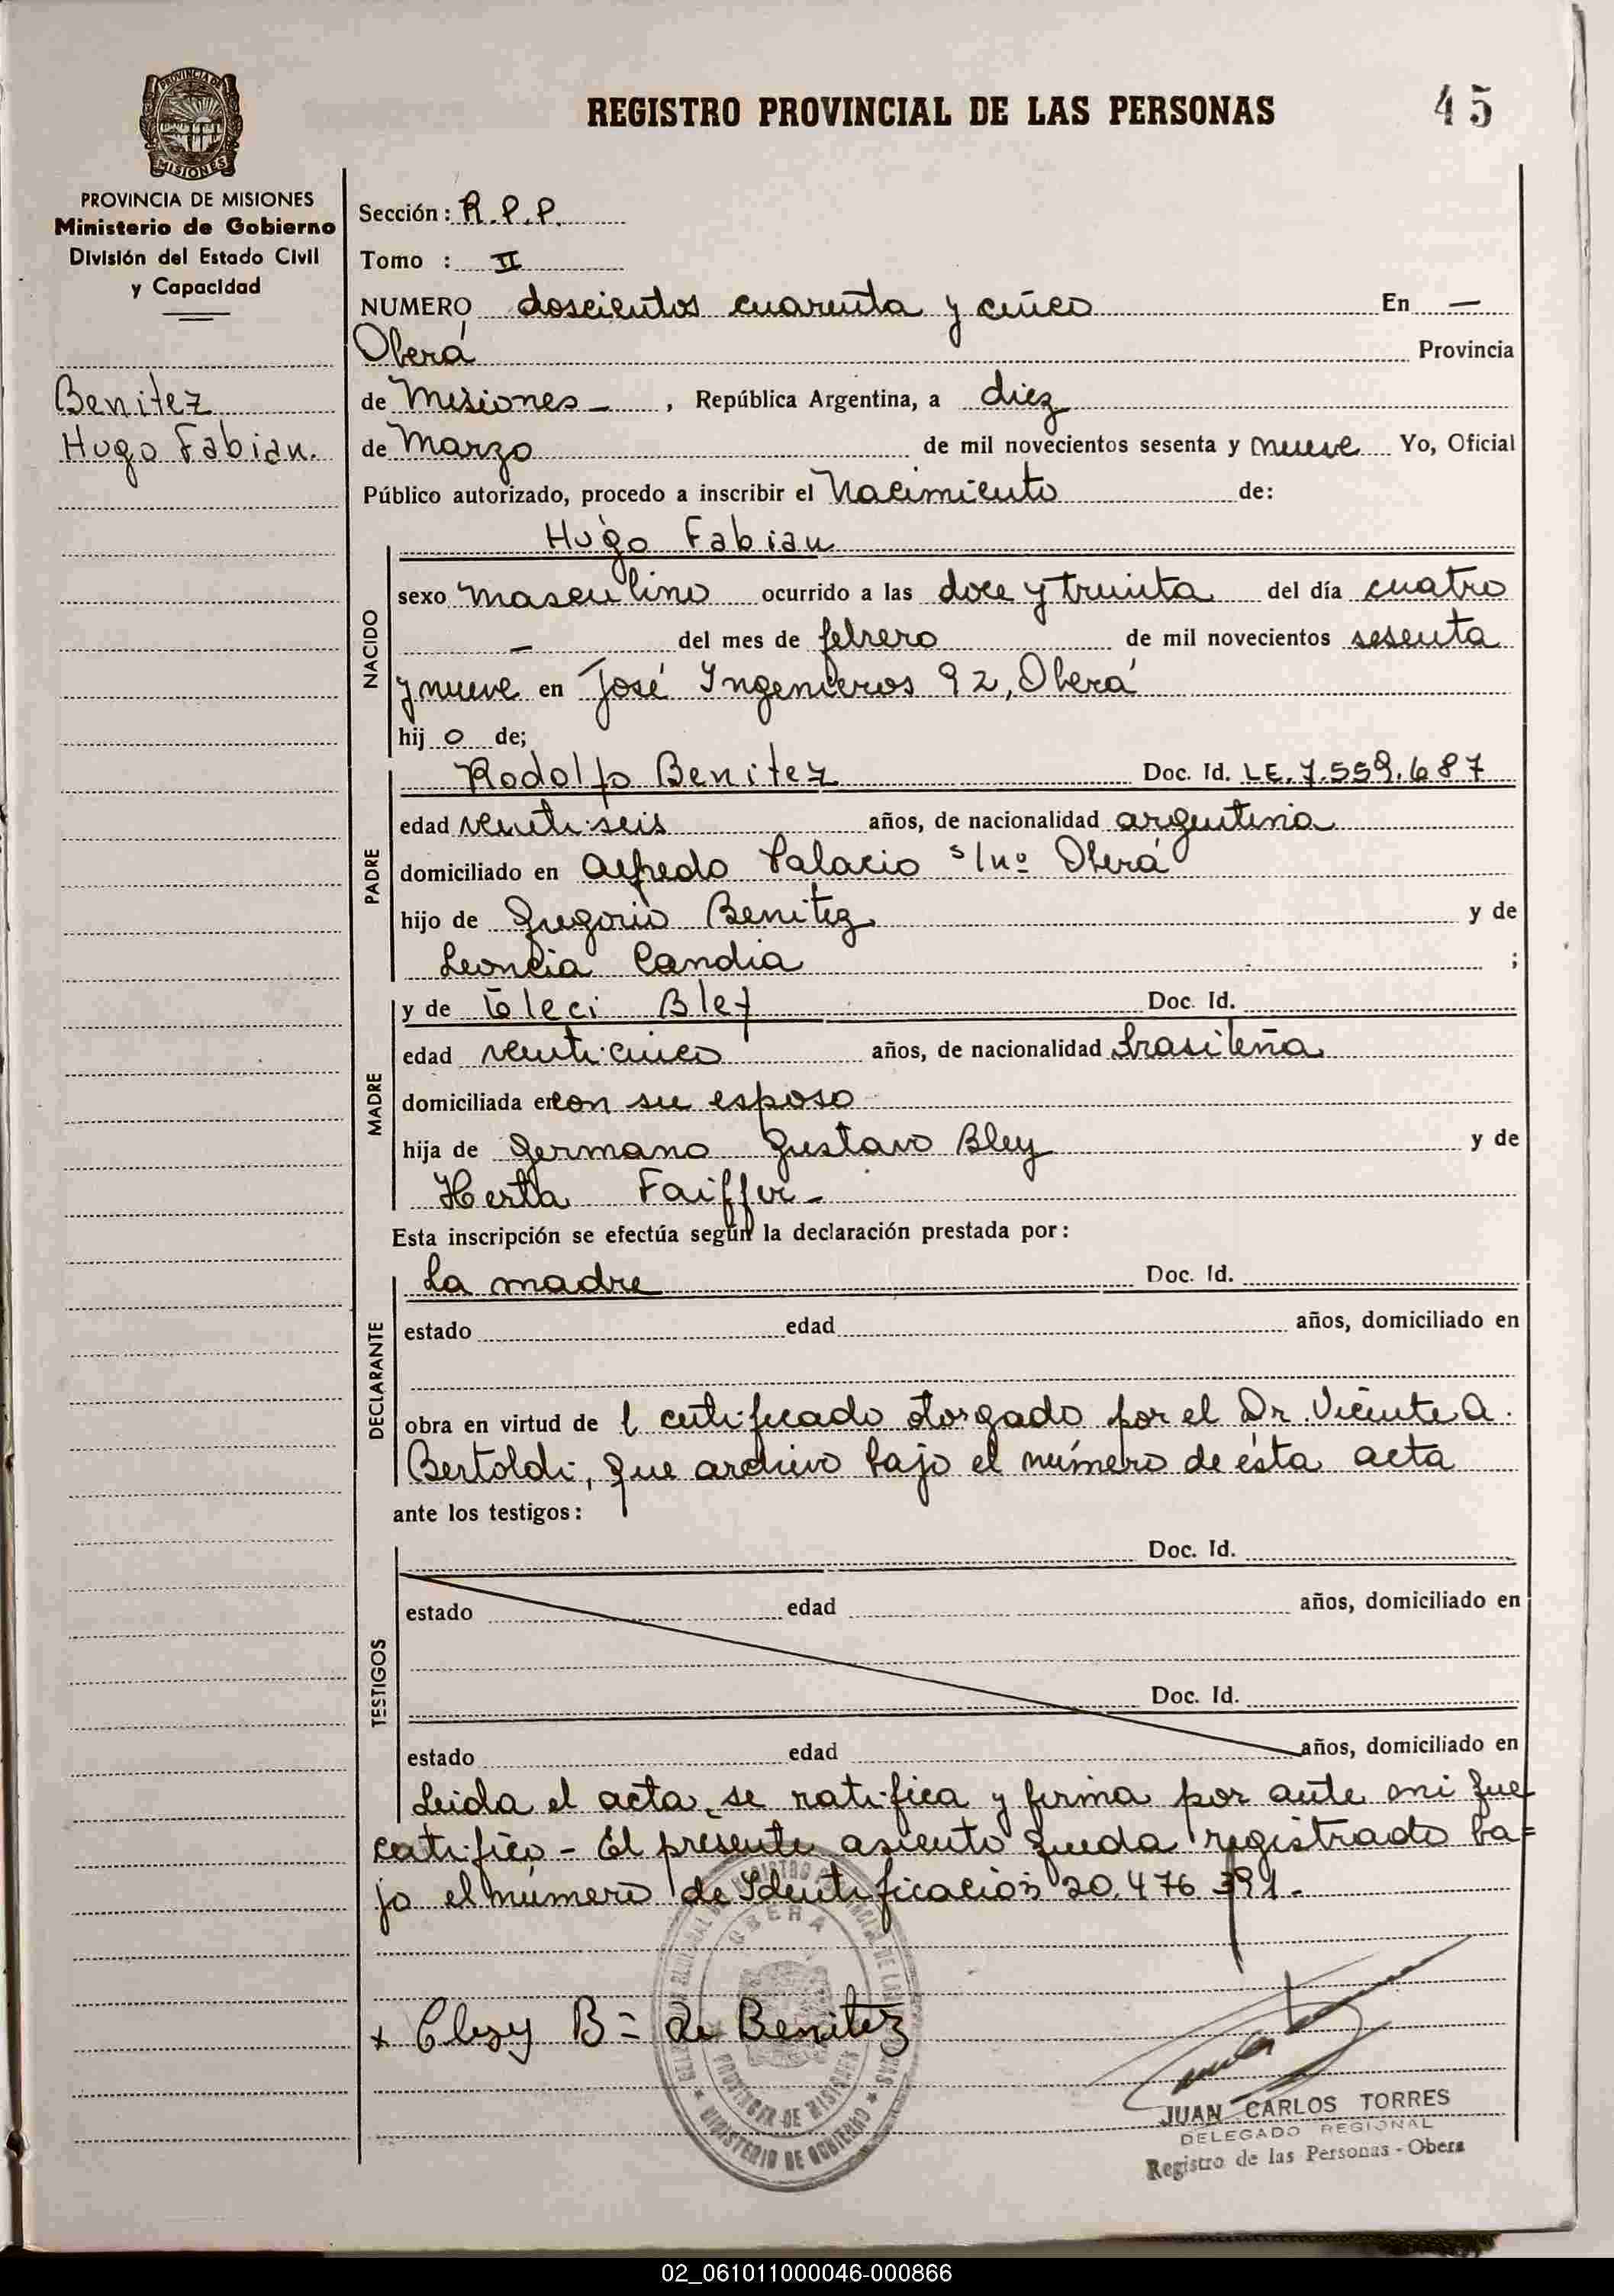 REGISTRO PROVINCIAL DE LAS PERSONAS
45
PROVINCIA DE
MISIONES
PROVINCIA DE MISIONES
Ministerio de Gobierno
División del Estado Civil
y Capacidad
Benitez
Hugo Fabian.
Sección: R.P.P.
Tomo : II
NUMERO doscientos cuarenta y cinco En —
Oberá Provincia
de Misiones — , República Argentina, a diez
de Marzo de mil novecientos sesenta y nueve Yo, Oficial
Público autorizado, procedo a inscribir el Nacimiento de:
Hugo Fabian
NACIDO
sexo masculino ocurrido a las doce y treinta del día cuatro
— del mes de febrero de mil novecientos sesenta
y nueve en José Ingenieros 92, Oberá
hij o de;
PADRE
Rodolfo Benitez Doc. Id. LE. 7.559.687
edad veintiseis años, de nacionalidad argentina
domiciliado en Alfredo Palacio s/nº Oberá
hijo de Gregorio Benitez y de
Leoncia Candia ;
MADRE
y de Bley Doc. Id.
edad veinticinco años, de nacionalidad brasileña
domiciliada en con su esposo
hija de Germano Gustavo Bley y de
Herta Faiffer —
Esta inscripción se efectúa según la declaración prestada por:
DECLARANTE
La madre Doc. Id.
estado edad años, domiciliado en
obra en virtud de l certificado otorgado por el Dr. Vicente A.
Bertoldi, que archivo bajo el número de ésta acta
ante los testigos:
TESTIGOS
Doc. Id.
estado edad años, domiciliado en
Doc. Id.
estado edad años, domiciliado en
Leida el acta, se ratifica y firma por ante mi que
certifico - El presente asiento queda registrado ba=
jo el número de Identificación 20.476.391.-
x B= de Benitez
OBERA
PROVINCIA DE MISIONES
MINISTERIO DE GOBIERNO
JUAN CARLOS TORRES
DELEGADO REGIONAL
Registro de las Personas - Obera
02_061011000046-000866